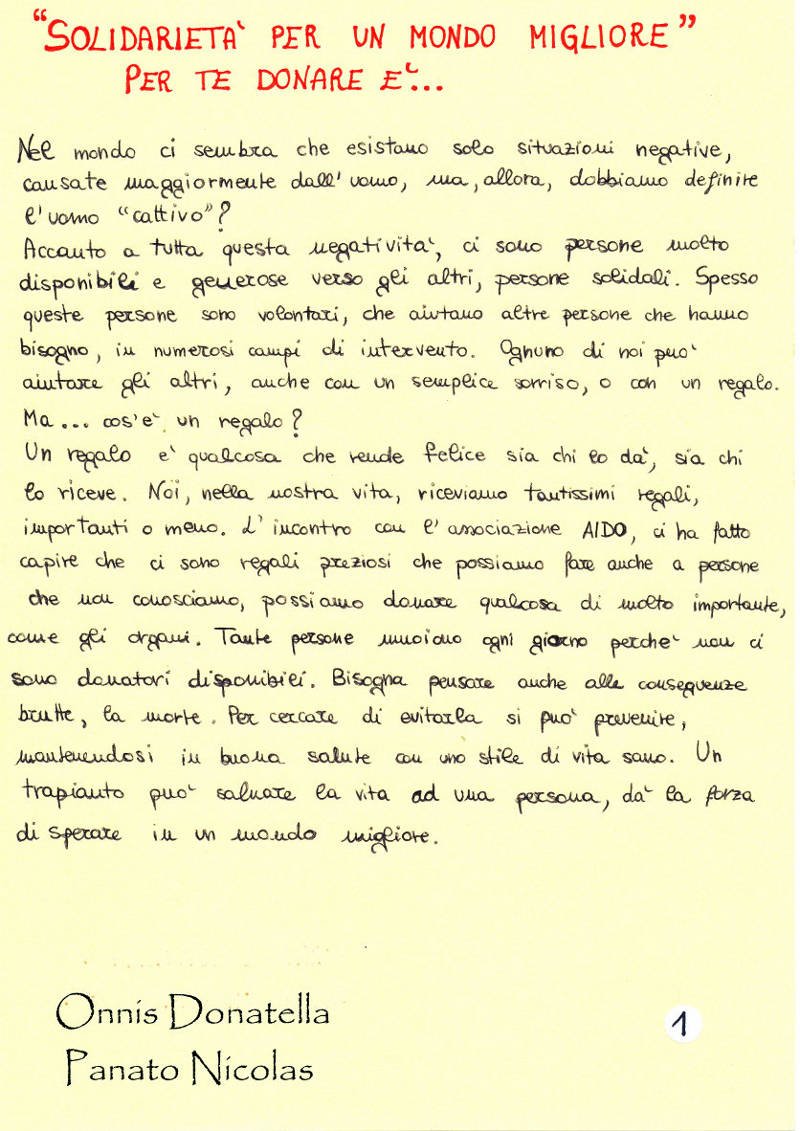 "SOLIDARIETA' PER UN MONDO MIGLIORE"
PER TE DONARE E'...
Nel mondo ci sembra che esistano solo situazioni negative,
causate maggiormente dall'uomo, ma, allora, dobbiamo definire
l'uomo "cattivo"?
Accanto a tutta questa negatività, ci sono persone molto
disponibili e generose verso gli altri, persone solidali. Spesso
queste persone sono volontari, che aiutano altre persone che hanno
bisogno, in numerosi campi di intervento. Ognuno di noi può
aiutare gli altri, anche con un semplice sorriso, o con un regalo.
Ma... cos'è un regalo?
Un regalo è qualcosa che rende felice sia chi lo dà, sia chi
lo riceve. Noi, nella nostra vita, riceviamo tantissimi regali,
importanti o meno. L'incontro con l'associazione AIDO, ci ha fatto
capire che ci sono regali preziosi che possiamo fare anche a persone
che non conosciamo, possiamo donare qualcosa di molto importante,
come gli organi. Tante persone muoiono ogni giorno perchè non ci
sono donatori disponibili. Bisogna pensare anche alle conseguenze
brutte, la morte. Per cercare di evitarla si può prevenire,
mantenendosi in buona salute con uno stile di vita sano. Un
trapianto può salvare la vita ad una persona, dà la forza
di sperare in un mondo migliore.
Onnis Donatella
Panato Nicolas
1